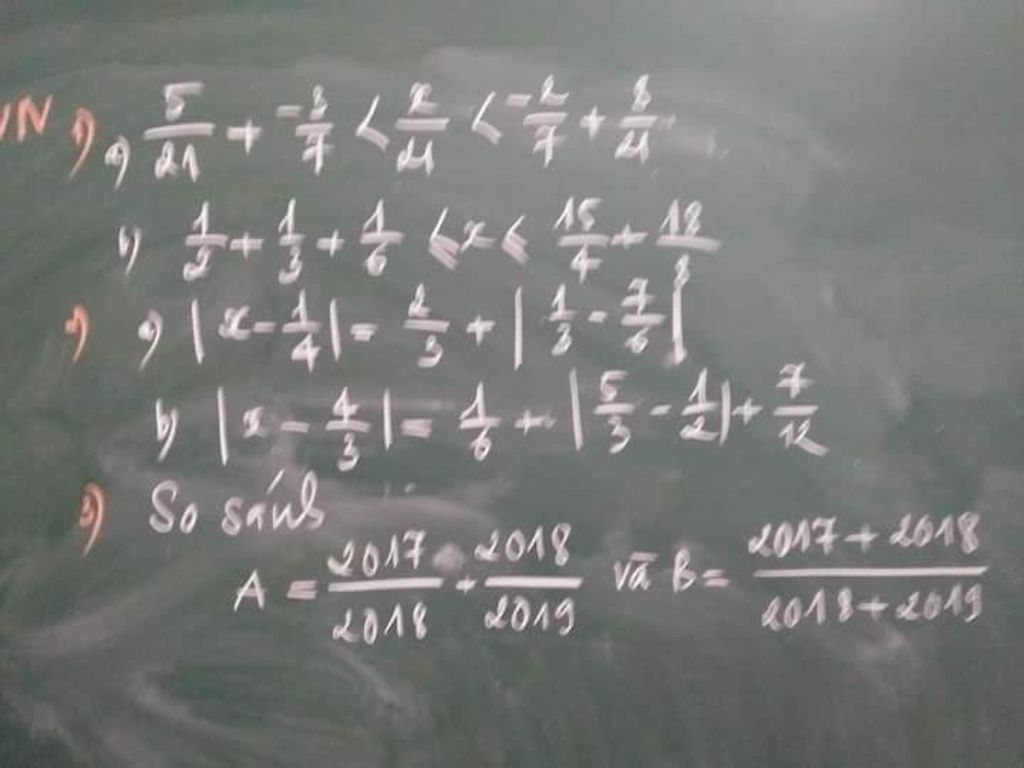 VN 1) a) 5/21 + -3/7 < x/21 < -2/7 + 8/21
b) 1/2 + 1/3 + 1/6 ≤ x ≤ 15/4 + 18/8
2) a) |x - 1/4| = 2/3 + |1/3 - 7/6|
b) |x - 4/3| = 1/6 + |5/3 - 1/2| + 7/12
3) So sánh
A = 2017/2018 + 2018/2019 và B = 2017 + 2018/2018 + 2019